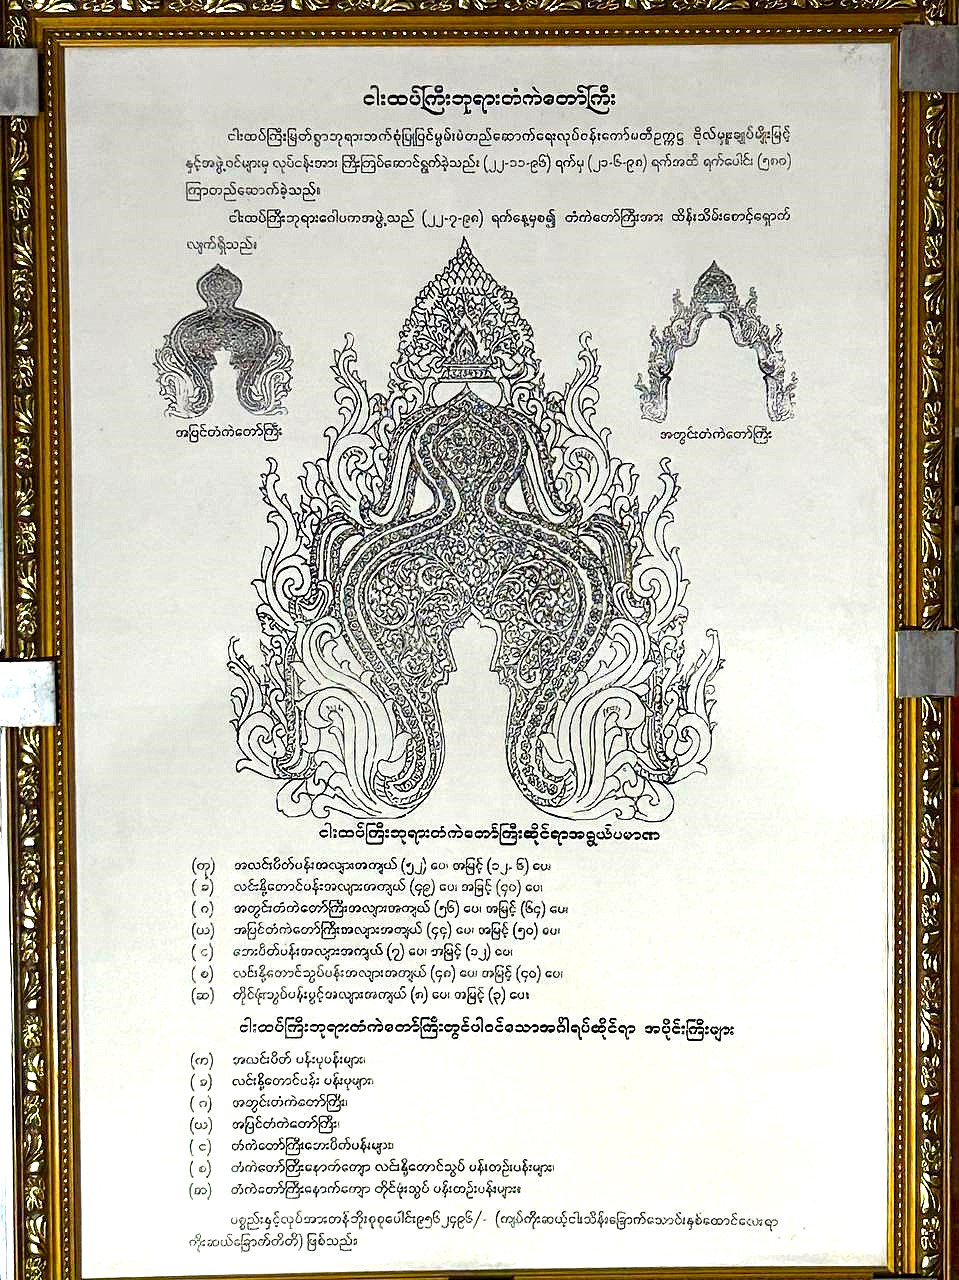 ငါးထပ်ကြီးဘုရားတံကဲတော်ကြီး
ငါးထပ်ကြီးမြတ်စွာဘုရားဘက်စုံပြုပြင်မွမ်းမံတည်ဆောက်ရေးလုပ်ငန်းကော်မတီဥက္ကဋ္ဌ ဗိုလ်မှူးချုပ်မျိုးမြင့်
နှင့်အဖွဲ့ဝင်များမှ လုပ်ငန်းအား ကြီးကြပ်ဆောင်ရွက်ခဲ့သည်၊ (၂၂-၁၁-၉၆) ရက်မှ (၂၁-၆-၉၈) ရက်အထိ ရက်ပေါင်း (၅၈၀)
ကြာတည်ဆောက်ခဲ့သည်။
ငါးထပ်ကြီးဘုရားဂေါပကအဖွဲ့သည် (၂၂-၇-၉၈) ရက်နေ့မှစ၍ တံကဲတော်ကြီးအား ထိန်းသိမ်းစောင့်ရှောက်
လျက်ရှိသည်။
အပြင်တံကဲတော်ကြီး
အတွင်းတံကဲတော်ကြီး
ငါးထပ်ကြီးဘုရားတံကဲတော်ကြီးဆိုင်ရာအရွယ်ပမာဏ
(က) အလင်းပိတ်ပန်းအလျားအကျယ် (၅၂) ပေ၊ အမြင့် (၁၂-၆) ပေ၊
(ခ) လင်းနို့တောင်ပန်းအလျားအကျယ် (၄၉) ပေ၊ အမြင့် (၄၀) ပေ၊
(ဂ) အတွင်းတံကဲတော်ကြီးအလျားအကျယ် (၅၆) ပေ၊ အမြင့် (၆၄) ပေ၊
(ဃ) အပြင်တံကဲတော်ကြီးအလျားအကျယ် (၄၄) ပေ၊ အမြင့် (၅၀) ပေ၊
(င) ဘေးပိတ်ပန်းအလျားအကျယ် (၇) ပေ၊ အမြင့် (၁၂) ပေ၊
(စ) လင်းနို့တောင်သွပ်ပန်းအလျားအကျယ် (၄၈) ပေ၊ အမြင့် (၄၀) ပေ၊
(ဆ) တိုင်ဖုံးသွပ်ပန်းပွင့်အလျားအကျယ် (၈) ပေ၊ အမြင့် (၃) ပေ။
ငါးထပ်ကြီးဘုရားတံကဲတော်ကြီးတွင်ပါဝင်သောအင်္ဂါရပ်ဆိုင်ရာ အပိုင်းကြီးများ
(က) အလင်းပိတ် ပန်းပုပန်းများ၊
(ခ) လင်းနို့တောင်ပန်း ပန်းပုများ၊
(ဂ) အတွင်းတံကဲတော်ကြီး၊
(ဃ) အပြင်တံကဲတော်ကြီး၊
(င) တံကဲတော်ကြီးဘေးပိတ်ပန်းများ၊
(စ) တံကဲတော်ကြီးနောက်ကျော လင်းနို့တောင်သွပ် ပန်းတဉ်းပန်းများ၊
(ဆ) တံကဲတော်ကြီးနောက်ကျော တိုင်ဖုံးသွပ် ပန်းတဉ်းပန်းများ။
ပစ္စည်းနှင့်လုပ်အားတန်ဘိုးစုစုပေါင်း၉၅၆၂၄၉၆/- (ကျပ်ကိုးဆယ့်ငါးသိန်းခြောက်သောင်းနှစ်ထောင်လေးရာ
ကိုးဆယ်ခြောက်တိတိ) ဖြစ်သည်။